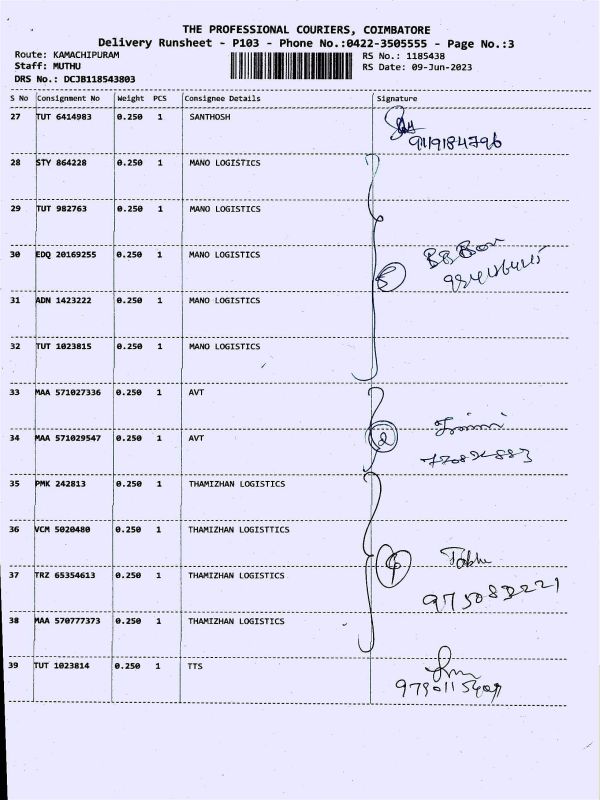 THE PROFESSIONAL COURIERS, COIMBATORE
Delivery Runsheet - P103 - Phone No.:0422-3505555 - Page No.:3
Route: KAMACHIPURAM
RS No.: 1185438
Staff: MUTHU
RS Date: 09-Jun-2023
DRS No.: DCJB118543803
S No Consignment No Weight PCS Consignee Details Signature
27 TUT 6414983 0.250 1 SANTHOSH
28 STY 864228 0.250 1 MANO LOGISTICS
29 TUT 982763 0.250 1 MANO LOGISTICS
30 EDQ 20169255 0.250 1 MANO LOGISTICS
31 ADN 1423222 0.250 1 MANO LOGISTICS
32 TUT 1023815 0.250 1 MANO LOGISTICS
33 MAA 571027336 0.250 1 AVT
34 MAA 571029547 0.250 1 AVT
35 PMK 242813 0.250 1 THAMIZHAN LOGISTICS
36 VCM 5020480 0.250 1 THAMIZHAN LOGISTTICS
37 TRZ 65354613 0.250 1 THAMIZHAN LOGISTICS
38 MAA 570777373 0.250 1 THAMIZHAN LOGISTICS
39 TUT 1023814 0.250 1 TTS